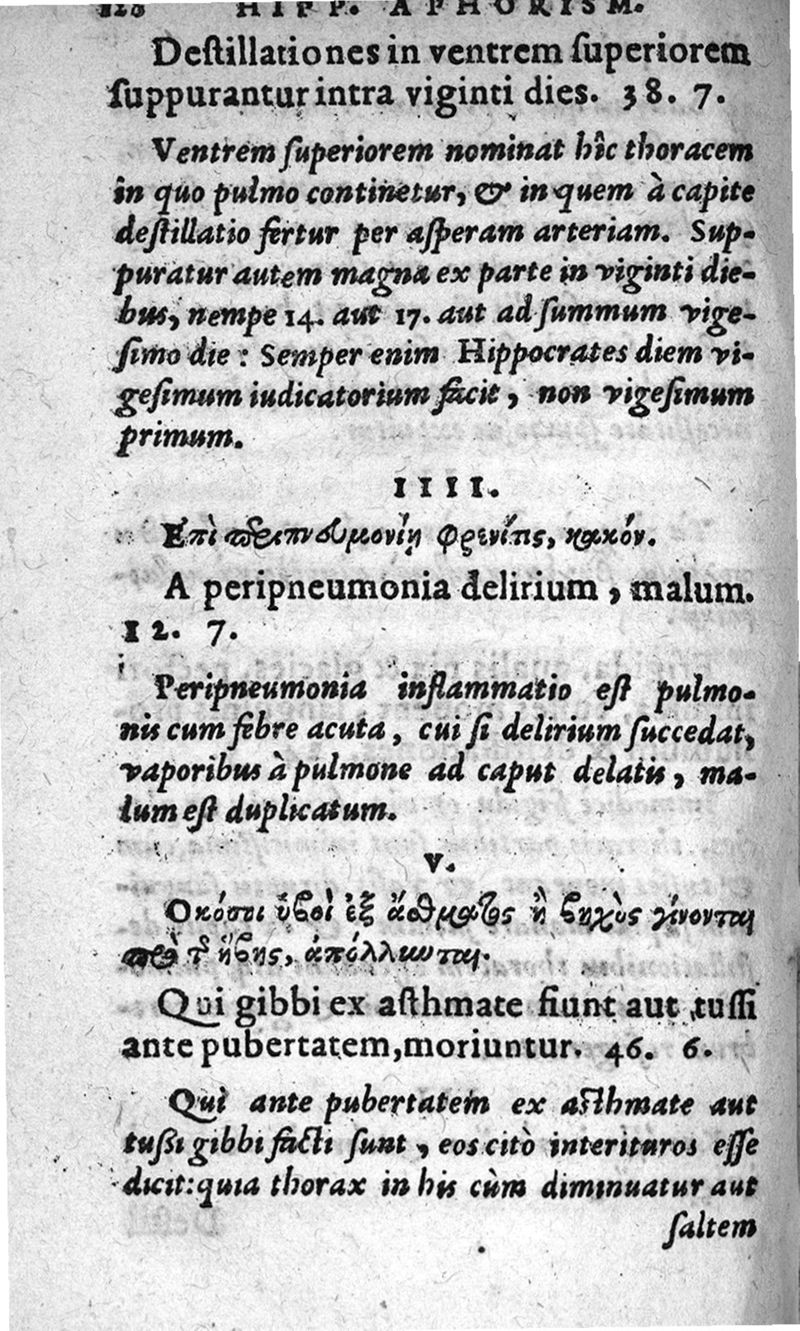 128 HIPP. APHORISM.
Deſtillationes in ventrem ſuperiorem
ſuppurantur intra viginti dies. 38. 7.
Ventrem ſuperiorem nominat hîc thoracem
in quo pulmo continetur, & in quem à capite
deſtillatio fertur per aſperam arteriam. Sup-
puratur autem magna ex parte in viginti die-
bus, nempe 14. aut 17. aut ad ſummum vige-
ſimo die: Semper enim Hippocrates diem vi-
geſimum iudicatorium facit, non vigeſimum
primum.
IIII.
Ἐπὶ περιπνευμονίῃ φρενῖτις, κακόν.
A peripneumonia delirium, malum.
12. 7.
Peripneumonia inflammatio eſt pulmo-
nis cum febre acuta, cui ſi delirium ſuccedat,
vaporibus à pulmone ad caput delatis, ma-
lum eſt duplicatum.
V.
Ὁκόσοι ὑβοὶ ἐξ ἄσθματος ἢ βηχὸς γίνονται
πρὸ τῆς ἥβης, ἀπόλλυνται.
Qui gibbi ex aſthmate fiunt aut tuſſi
ante pubertatem, moriuntur. 46. 6.
Qui ante pubertatem ex aſthmate aut
tuſsi gibbi facti ſunt, eos citò interituros eſſe
dicit: quia thorax in his cùm diminuatur aut
ſaltem